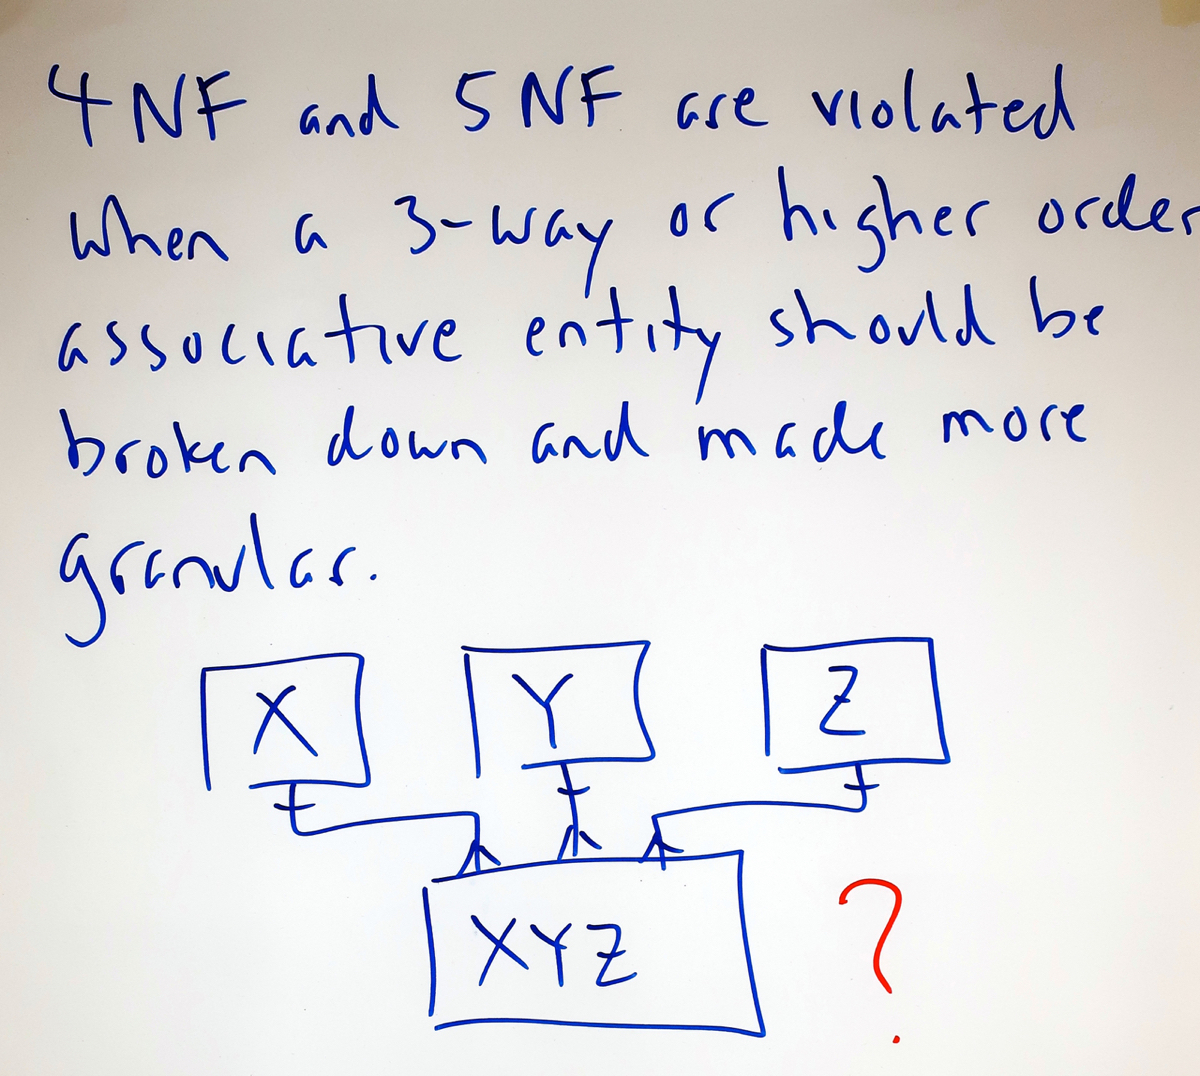 4NF and 5NF are violated
when a 3-way or higher order
associative entity should be
broken down and made more
granular.
X Y Z
XYZ ?